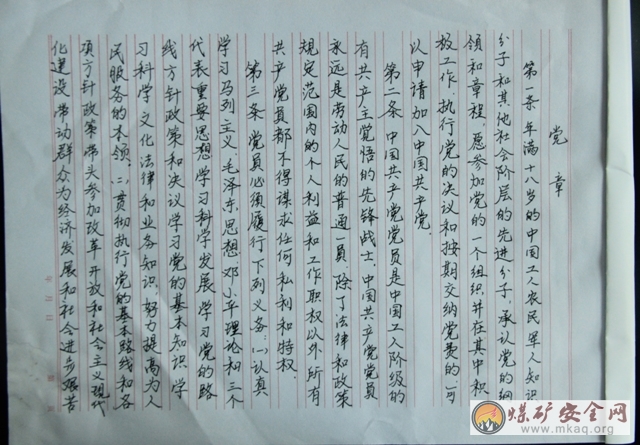 党章
第一条 年满十八岁的中国工人农民军人知识
分子和其他社会阶层的先进分子，承认党的纲
领和章程，愿参加党的一个组织并在其中积
极工作、执行党的决议和按期交纳党费的，可
以申请加入中国共产党。
第二条 中国共产党党员是中国工人阶级的
有共产主觉悟的先锋战士，中国共产党党员
永远是劳动人民的普通一员，除了法律和政策
规定范围内的个人利益和工作职权以外，所有
共产党员都不得谋求任何私利和特权。
第三条 党员必须履行下列义务：(一)认真
学习马列主义 毛泽东思想 邓小平理论和三个
代表重要思想学习科学发展、学习党的路
线方针政策和决议学习党的基本知识，学
习科学文化法律和业务知识，努力提高为人
民服务的本领。(二)贯彻执行党的基本路线和各
项方针政策带头参加改革开放和社会主义现代
化建设带动群众为经济发展和社会进步艰苦
年 月 日
煤矿安全网
www.mkaq.org